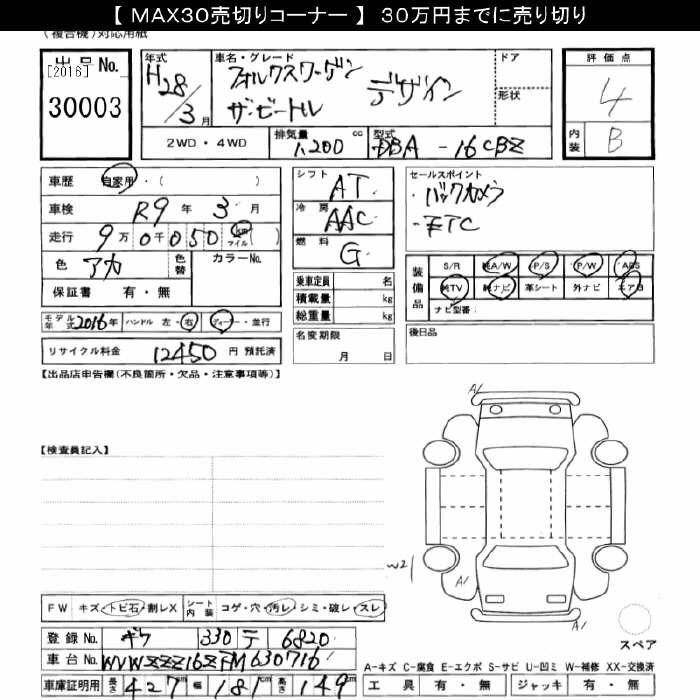 【 MAX30売切りコーナー 】 30万円までに売り切り
(複合機)対応用紙
出品No. [2016] 30003
年式 H28/3月
車名・グレード フォルクスワーゲン ザ・ビートル デザイン
ドア
形状
評価点 4
内装 B
2WD・4WD
排気量 1,200 cc
型式 DBA - 16CBZ
車歴 自家用・( )
車検 R9年 3月
走行 9万0千050 km マイル ( )
色 アカ 色替 カラーNo.
保証書 有・無
モデル年式 2016年 ハンドル 左・右 ディーラー・並行
リサイクル料金 12450 円 預託済
シフト AT
冷房 AAC
燃料 G
乗車定員 名
積載量 kg
総重量 kg
名変期限 月 日
セールスポイント
・バックカメラ
・ETC
装備品
S/R 純A/W P/S P/W ABS
純TV 純ナビ 革シート 外ナビ エアB
ナビ型番:
後日品
【出品店申告欄(不良箇所・欠品・注意事項等)】
【検査員記入】
A1
A1
W21
A1
A1
スペア
FW キズ・トビ石・割レX シート内装 コゲ・穴・汚レ・シミ・破レ・スレ
登録No. ギフ 330 テ 6820
車台No. WVWZZZ16ZFM630716
車庫証明用 長さ 427 cm 幅 181 cm 高さ 149 cm
A-キズ C-腐食 E-エクボ S-サビ U-凹ミ W-補修 XX-交換済
工具 有・無 ジャッキ 有・無